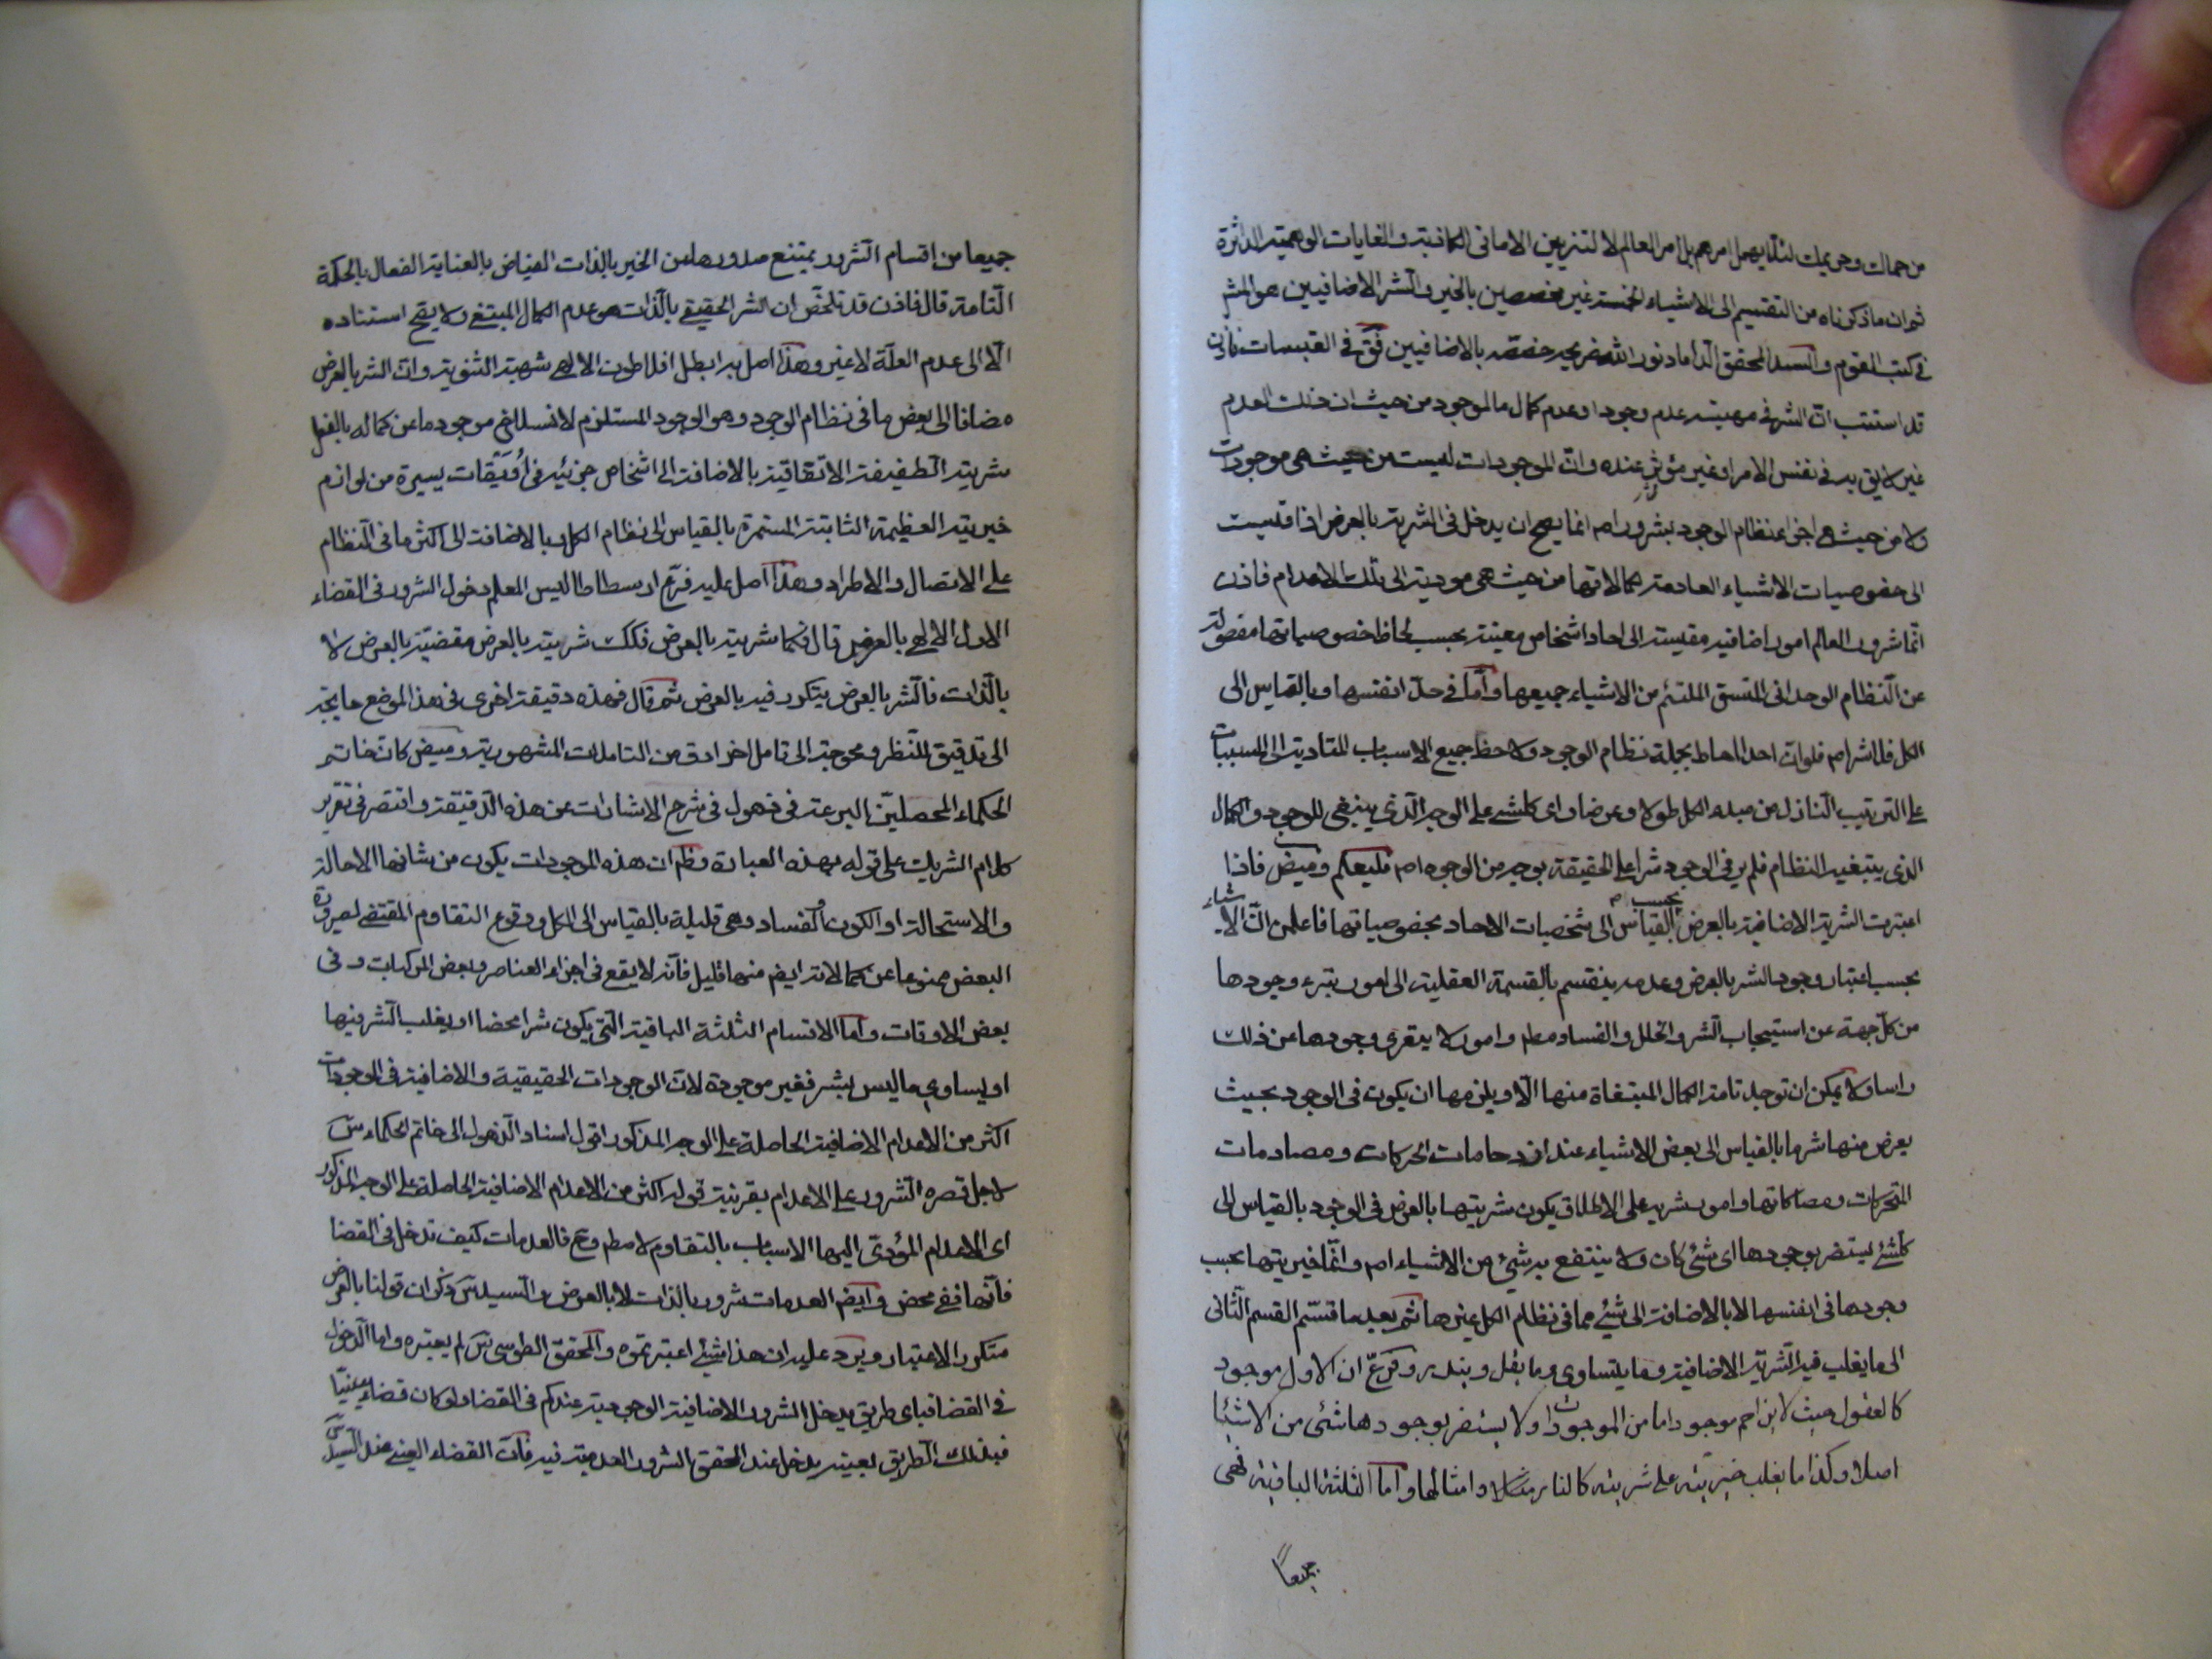 من حماك وحريمك لئلا يهمل امرهم بل امر العالم لا لتزيين الامانى الكاذبة والغايات الوهمية الداثرة
ثم ان ما ذكرناه من التقسيم الى الاشياء الخمسة غير مخصصين بالخير والشر الاضافيين هو المش
فى كتب القوم والسيد المحقق الداماد نور الله ضريحه خصصه بالاضافيين فق فى القبسات فاذن
قد استتب ان الشر فى مهيته عدم وجود او عدم كمال ما لموجود من حيث ان ذلك العدم
غير لايق به فى نفس الامر او غير مؤثر عنده وان الموجودات ليست من حيث هى موجودات
ولا من حيث هى اجزاء نظام الوجود بشرور اصلا انما يصح ان يدخل فى الشرية بالعرض اذا قيست
الى خصوصيات الاشياء العادمة كمالاتها من حيث هى مودية الى تلك الاعدام فاذن
انما شرور العالم امور اضافية مقيسة الى احاد اشخاص معينة بحسب لحاظ خصوصياتها مفصولة
عن النظام الوحدانى المتسق الملتئم من الاشياء جميعها واما فى حد انفسها وبالقياس الى
الكل فلا شر اصم فلو ان احدا احاط بجملة نظام الوجود ولاحظ جميع الاسباب المتادية الى المسببات
على الترتيب النازل من مبدء الكل طولا وعرضا راى كلشئ على الوجه الذى ينبغى للوجود والكمال
الذى يبتغيه النظام فلم ير فى الوجود شرا على الحقيقة بوجه من الوجوه اصم فليعلم وميض فاذا
اعتبرت الشرية الاضافية بالعرض بحسب القياس الى شخصيات الاحاد بخصوصياتها فاعلمن ان الاشياء
بحسب اعتبار وجود الشر بالعرض وعدمه ينقسم بالقسمة العقلية الى امور تبرء وجودها
من كل جهة عن استيجاب الشر والخلل والفساد مطم وامور لا يتعرى وجودها عن ذلك
راسا ولا يمكن ان توجد تامة الكمال المبتغاة منها الا ويلزمها ان يكون فى الوجود بحيث
يعرض منها شر ما بالقياس الى بعض الاشياء عند ازدحامات الحركات ومصادمات
المتحركات ومصاكاتها وامور شرية على الاطلاق يكون شريتها بالعرض فى الوجود بالقياس الى
كلشئ يستضر بوجودها اى شئ كان ولا ينتفع به شئ من الاشياء اصم وانما خيريتها بحسب
وجودها فى انفسها لا بالاضافة الى شئ مما فى نظام الكل غيرها ثم بعد ما قسم القسم الثانى
الى ما يغلب فيه الشرية الاضافية وما يتساوى وما يقل ويندر وفرع ان الاول موجود
كالعقول حيث لا يزاحم موجودا ما من الموجودات ولا يستضر بوجودها شئ من الاشيا
اصلا وكذا ما يغلب خيريته على شريته كالنار مثلا وامثالها واما الثلثة الباقية فهى
جميعا
جميعا من اقسام الشرور يمتنع صدورها من الخير بالذات الفياض بالعناية الفعال بالحكمة
التامة قال فاذن قد تلخص ان الشر الحقيقى بالذات هو عدم الكمال المبتغى ولا يصح استناده
الا الى عدم العلة لا غير وهذا اصل به ابطل افلاطون الالهى شبهة الثنوية وان الشر بالعرض
مضافا الى بعض ما فى نظام الوجود وهو الوجود المستلزم لانسلاخ موجود ما عن كماله بالفعل
شرية الطفيفة الاتفاقية بالاضافة الى اشخاص جزئية فى اُوَيقات يسيرة من لوازم
خيريته العظيمة الثابتة المستمرة بالقياس الى نظام الكل وبالاضافة الى اكثر ما فى النظام
على الاتصال والاطراد وهذا اصل عليه فرع ارسطاطاليس المعلم دخول الشرور فى القضاء
الاول الالهى بالعرض قال فكما شرية بالعرض فكك شرية بالعرض مقضية بالعرض لا
بالذات فالشر بالعرض يتكرر فيه بالعرض ثم قال فهذه دقيقة اخرى فى هذا الموضع
الى تدقيق للنظر ومحوجة الى تامل اخر ادق من التاملات المشهورية وميض كان خاتم
الحكماء المحصلين البرعة فى ذهول فى شرح الاشارات عن هذه الدقيقة واقتصر فى تقرير
كلام الشريك على قوله بهذه العبارة وظم ان هذه الموجودات يكون من شانها الاحالة
والاستحالة او الكون والفساد وهى قليلة بالقياس الى الكل ووقوع التقاوم المقتضى لصيرورة
البعض ممنوعا عن كمالاته ايضم منها قليل فانه لا يقع فى اجزاء العناصر وبعض المركبات وفى
بعض الاوقات واما الاقسام الثلثة الباقية التى يكون شرا محضا او يغلب الشر فيها
او يساوى ما ليس بشر فغير موجودة لان الوجودات الحقيقية والاضافية فى الوجودات
اكثر من الاعدام الاضافية الحاصلة على الوجه المذكور اقول اسناد الذهول الى خاتم الحكماء س
لاجل قصره الشرور على الاعدام بقرينة قوله اكثر من الاعدام الاضافية الحاصلة على الوجه المذكور
اى الاعدام المؤدى اليها الاسباب بالتقاوم لا مطم وح فالعدمات كيف تدخل فى القضا
فانها نفى محض وايضم العدمات شرور بالذات لا بالعرض والسيد س ذكر ان قولنا بالعرض
متكرر الاعتبار ويرد عليه ان هذا شئ اعتبرتموه والمحقق الطوسى س لم يعتبره واما الدخول
فى القضا فباى طريق يدخل الشرور الاضافية الوجودية عندكم فى القضا ولو كان قضاء عينيا
فبذلك الطريق بعينه يدخل عند المحقق الشرور العدمية فيه فان القضاء العينى عند السيد س